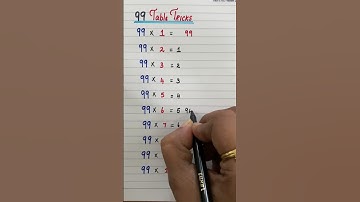 99 Table Tricks
99 × 1 = 99
99 × 2 = 1
99 × 3 = 2
99 × 4 = 3
99 × 5 = 4
99 × 6 = 5 94
99 × 7 = 6
99 ×
99 ×
99 × 1